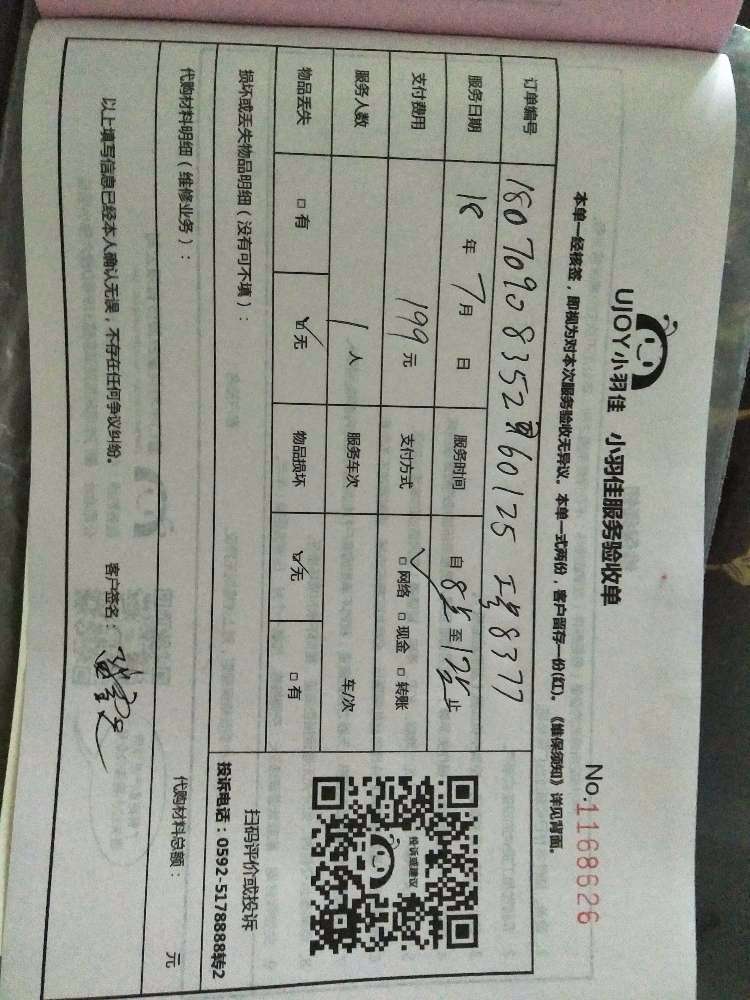 UJOY小羽佳 小羽佳服务验收单
No.1168626
本单一经核签，即视为对本次服务验收无异议。本单一式两份，客户留存一份(红)。《维保须知》详见背面。
订单编号 18070908352 60125 工号8377
服务日期 18年7月 日 服务时间 自8点至12点止
支付费用 199元 支付方式 ☑网络 □现金 □转账
服务人数 1人 服务车次 车/次
物品丢失 □有 ☑无 物品损坏 ☑无 □有
投诉或建议
扫码评价或投诉
投诉电话：0592-5178888转2
损坏或丢失物品明细（没有可不填）：
代购材料明细（维修业务）：
代购材料总额： 元
以上填写信息已经本人确认无误，不存在任何争议纠纷。 客户签名：